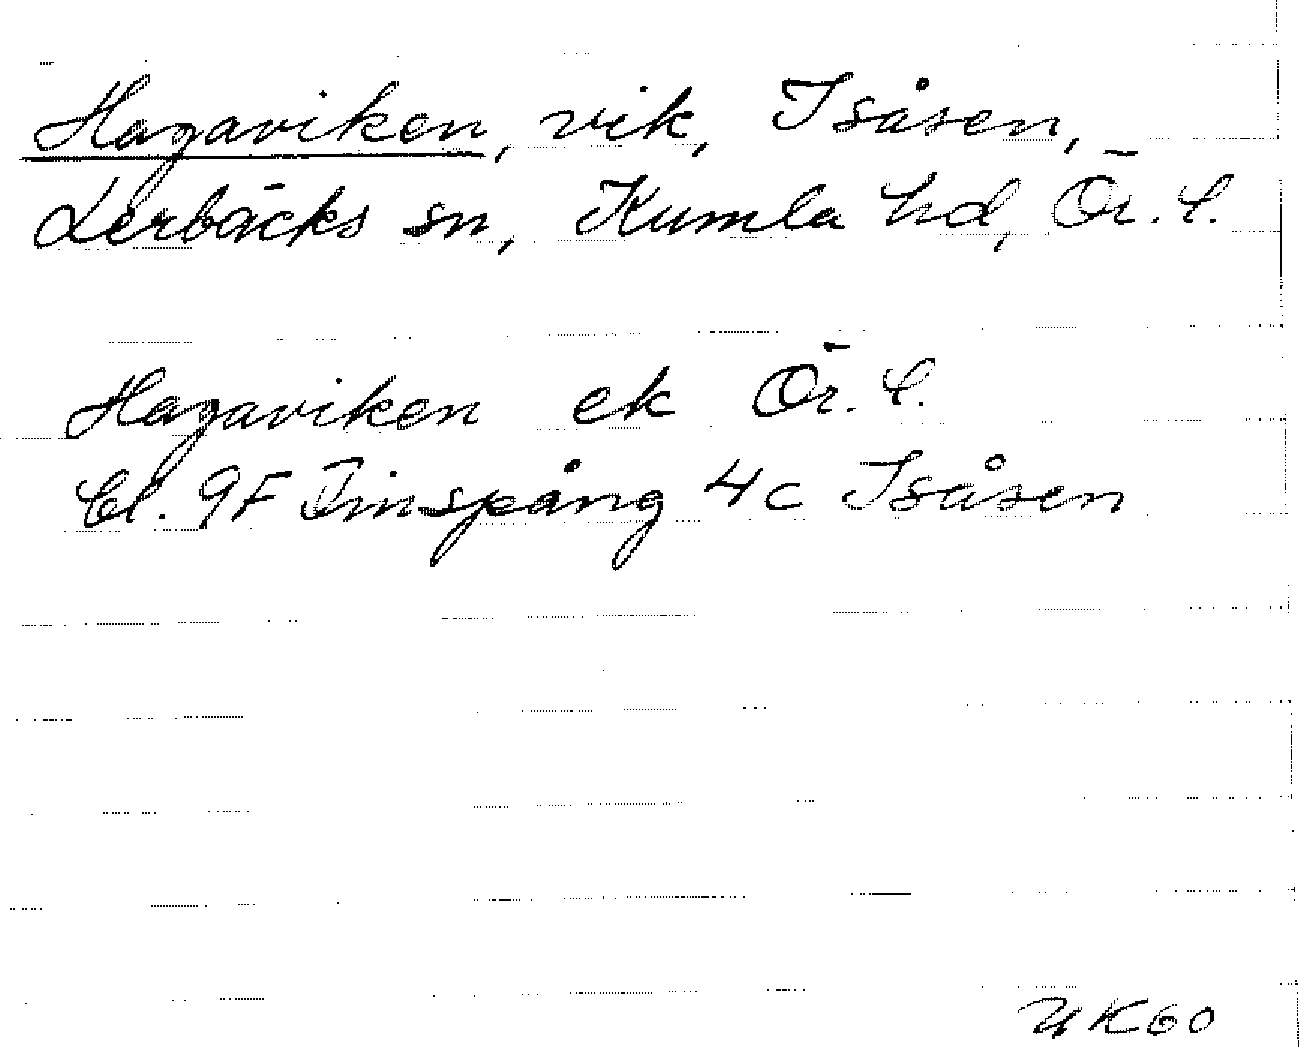 Hagaviken, vik, Isåsen,
Lerbäcks sn, Kumla hd, Ör. l.
Hagaviken ek Ör. l.
bl. 9F Finspång 4c Isåsen
UK60